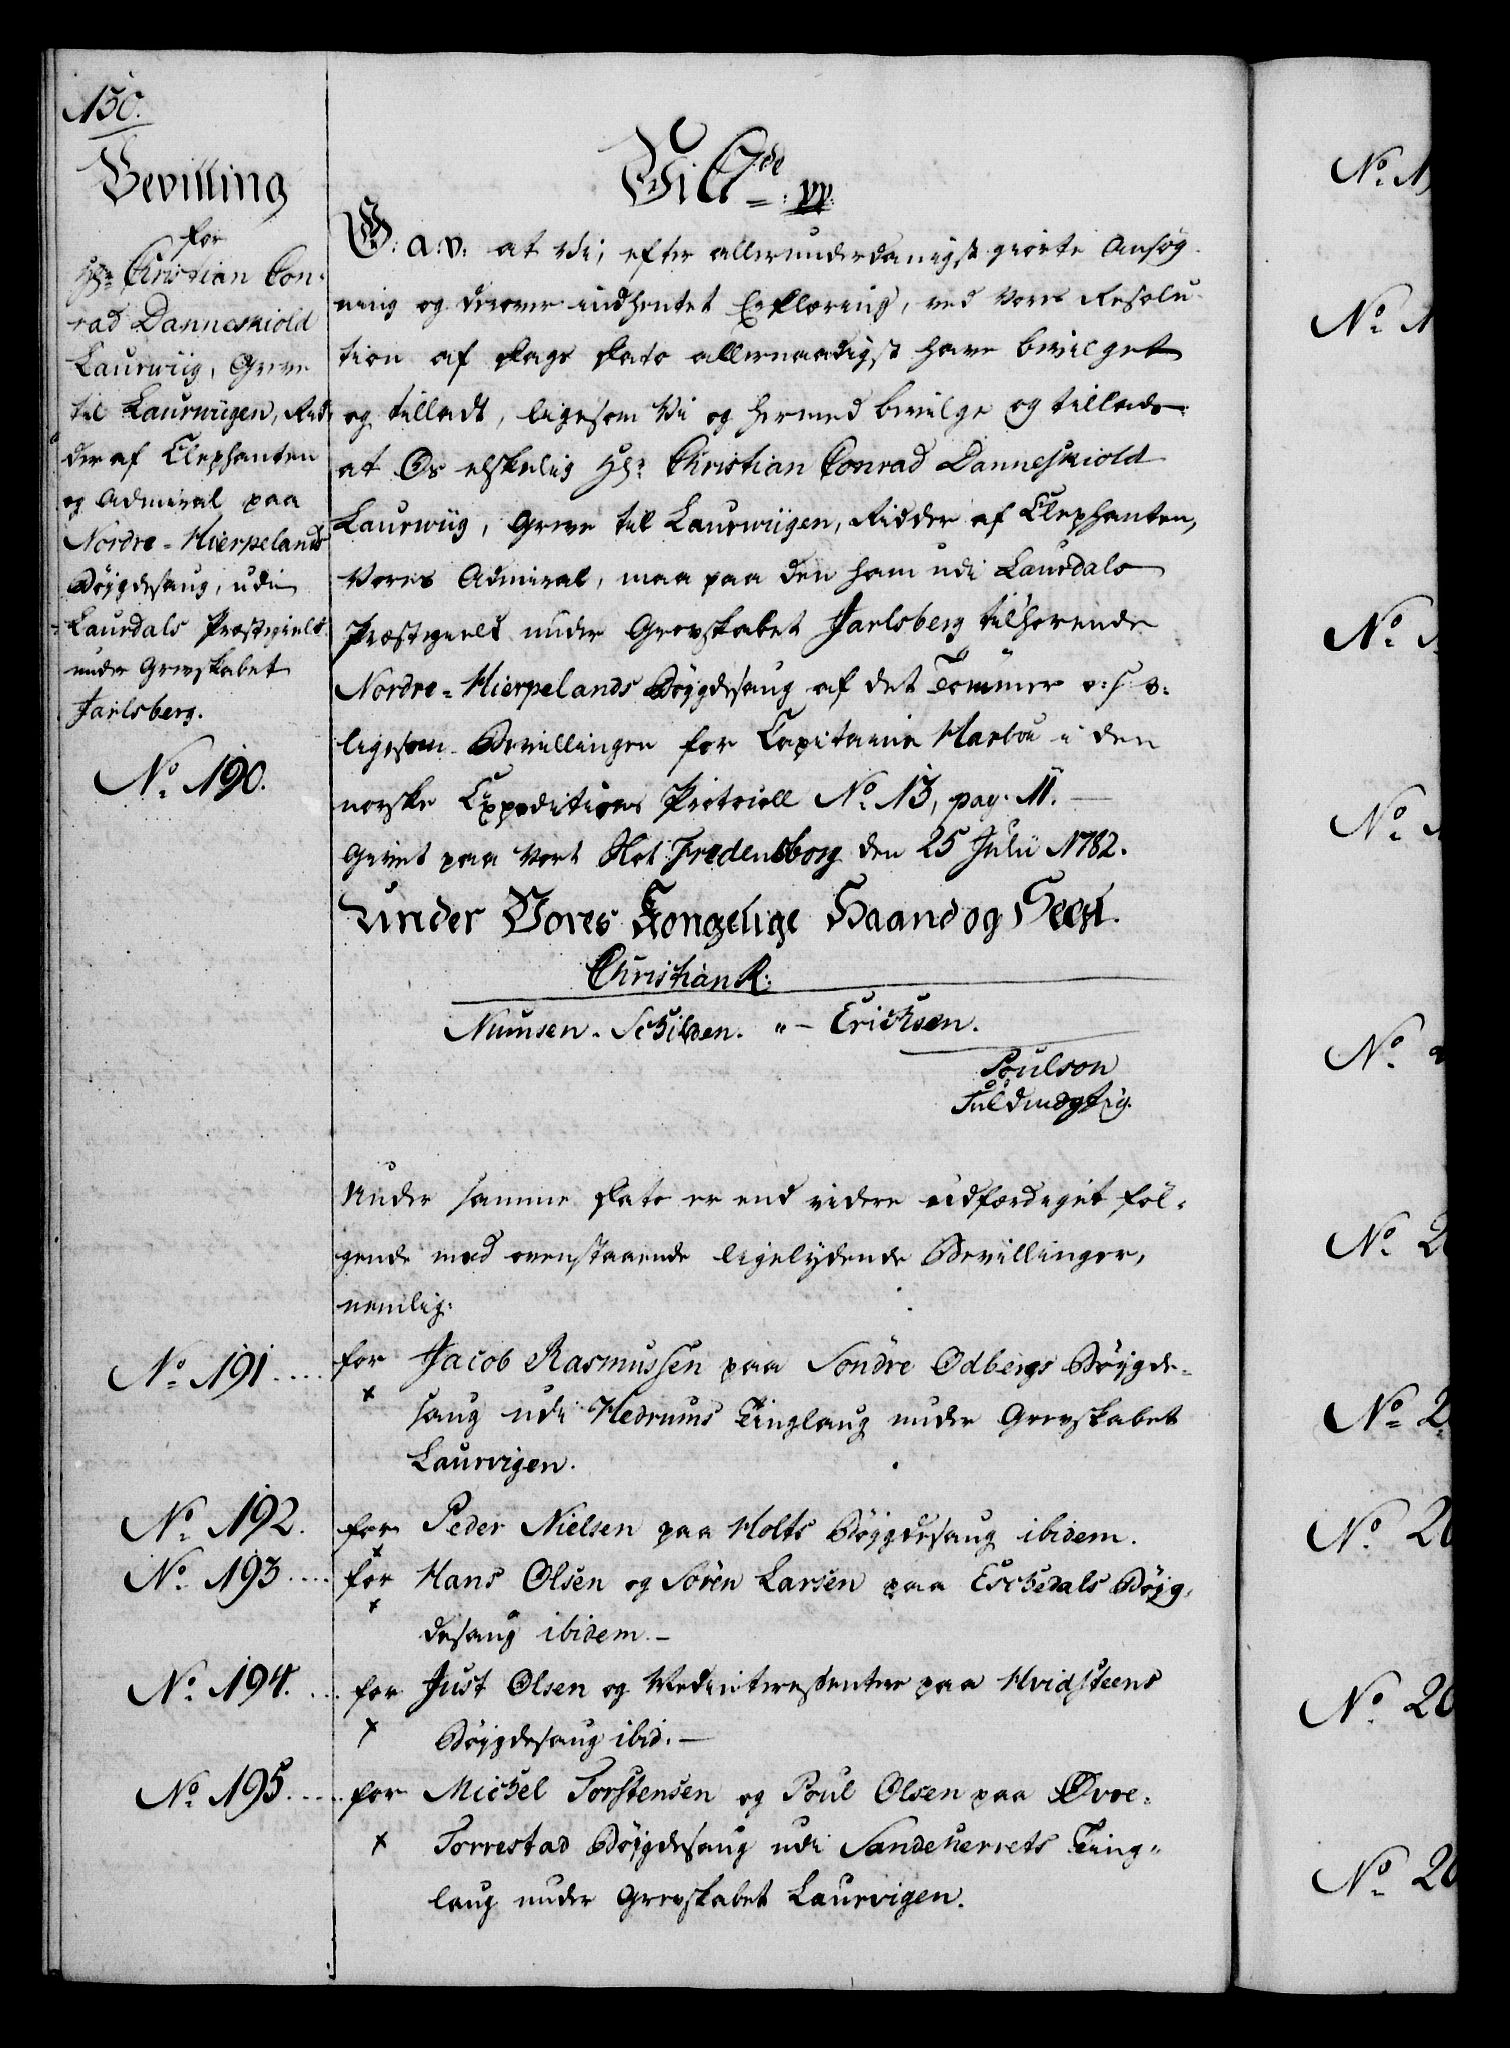 150.
Bevilling
for
Hr. Christian Con-
rad Danneskiold
Laurwiig, Greve
til Laurwiigen, Rid-
der af Elephanten
og Admiral paa
Nordre-Hierpelands
Böygdesaug, udi
Laurdals Præstegield
under Grevskabet
Jarlsberg.
No. 190.
Vi C 7de pp.
G: a: v: at Vi, efter allerunderdanigst giorte Ansøg-
ning og derover indhentet Erklæring, ved Vores Resolu-
tion af Dags Dato allernaadigst have bevilget
og tilladt, ligesom Vi og hermed bevilge og tillade:
at Os elskelig Hr. Christian Conrad Danneskiold
Laurwiig, Greve til Laurwiigen, Ridder af Elephanten,
Vores Admiral, maa paa den ham udi Laurdals
Præstegield under Grevskabet Jarlsberg tilhørende
Nordre-Hierpelands Böygdesaug af det Tömmer o: s: v:
ligesom Bevillingen for Capitaine Harboe i den
norske Expeditions Protocoll No. 13, pag. 11. —
Givet paa Vort Slot Fredensborg den 25 Julii 1782.
Under Vores Kongelige Haand og Seigl.
Christian R.
Numsen. Schilden. " — Erichsen.
Poulson
Fuldmægtig.
Under samme Dato er end videre udfærdiget föl-
gende med ovenstaaende ligelydende Bevillinger,
nemlig:
No. 191.... for Jacob Rasmussen paa Söndre Odbergs Böygde-
x saug udi Hedrums Tinglaug under Grevskabet
Laurvigen.
No. 192. for Peder Nielsen paa Holts Böygdesaug ibidem.
x
No. 193.... for Hans Olsen og Sören Larsen paa Eschedals Böyg-
x desaug ibidem. —
No. 194.... for Just Olsen og Medinteressentere paa Hvidsteens
x Böygdesaug ibid. —
No. 195.... for Michel Torstensen og Poul Olsen paa Övre-
x Torrestad Böygdesaug udi Sandeherrets Ting-
laug under Grevskabet Laurvigen.